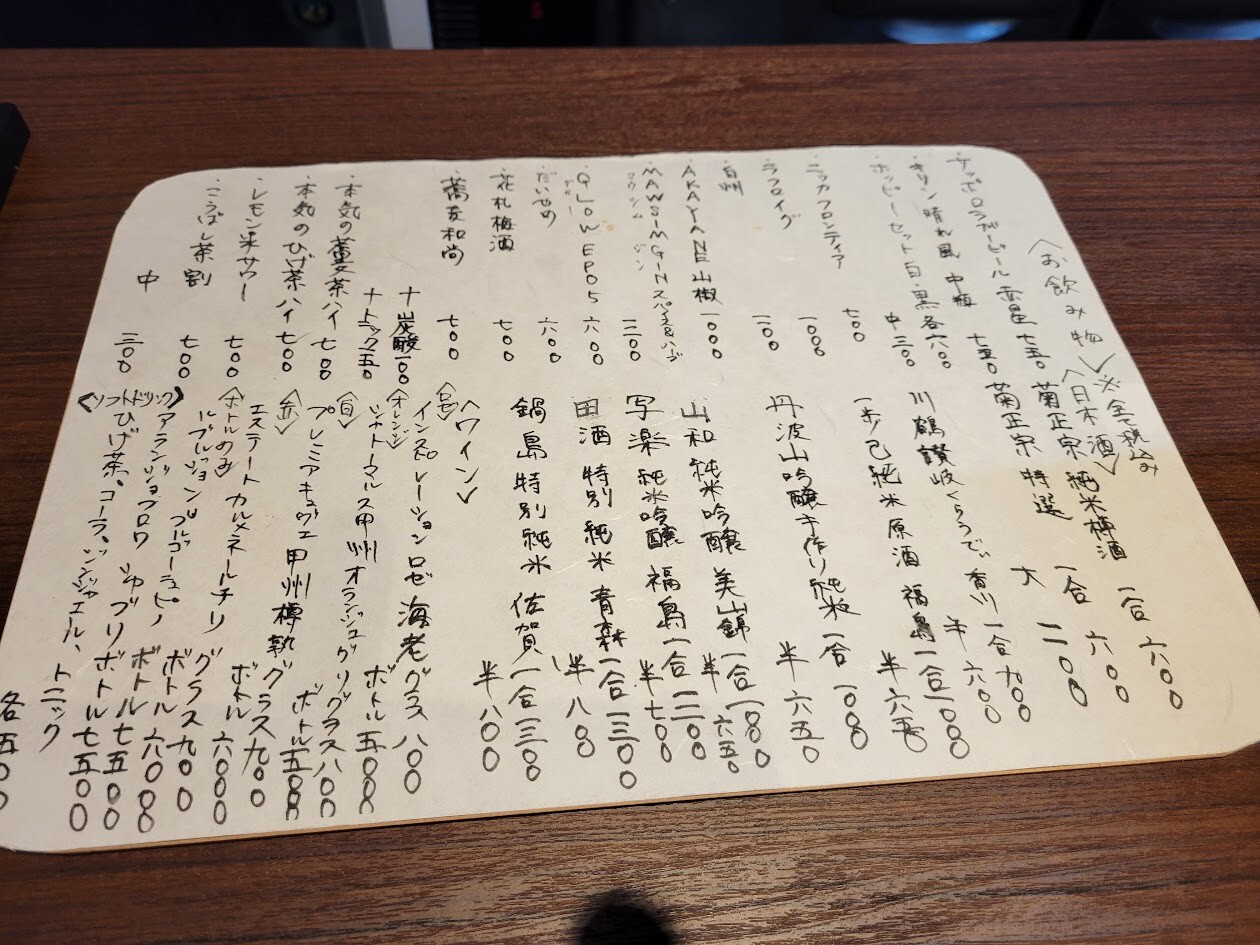 〈お飲み物〉 ※全て税込み
・サッポロラガービール 赤星 七五〇
・キリン 晴れ風 中瓶 七五〇
・ホッピーセット 白・黒 各六〇〇
中 三〇〇
・ニッカフロンティア 七〇〇
・ラフロイグ 一〇〇〇
・白州
・AKAYANE 山椒 一〇〇〇
・MAWSIM GIN スパイス&ハーブ
マウシム ジン
・GLOW EP05 六〇〇
グロー
・だいやめ 六〇〇
・花札梅酒 七〇〇
・蕎麦和尚 七〇〇
+炭酸 一〇〇
+トニック 一五〇
・本気の蕎麦茶ハイ 七〇〇
・本気のひげ茶ハイ 七〇〇
・レモン米サワー 七〇〇
・こうばし茶割 七〇〇
中 三〇〇
〈日本酒〉
菊正宗 純米樽酒 一合 六〇〇
菊正宗 特選 一合 六〇〇
大 一二〇〇
川鶴 讃岐くらうでぃ 香川 一合 九〇〇
半 六〇〇
一歩己 純米原酒 福島 一合 一〇〇〇
半 六五〇
丹波山 吟醸 手作り純米 一合 一〇〇〇
半 六五〇
山和 純米吟醸 美山錦 一合 一〇〇〇
半 六五〇
写楽 純米吟醸 福島 一合 一二〇〇
半 七〇〇
田酒 特別純米 青森 一合 一三〇〇
半 八〇〇
鍋島 特別純米 佐賀 一合 一三〇〇
半 八〇〇
〈ワイン〉
〈ロゼ〉
インスピレーション ロゼ 海老 グラス 八〇〇
ボトル 五〇〇〇
〈オレンジ〉
シャトーマルス 甲州 オランジュ・グリ グラス 八〇〇
ボトル 五〇〇〇
〈白〉
プレミアキュヴェ 甲州樽熟 グラス 九〇〇
ボトル 六〇〇〇
〈赤〉
エステート カルメネール チリ グラス 九〇〇
ボトル 六〇〇〇
〈ボトルのみ〉
ブルゴーニュピノ ボトル 七五〇〇
シャブリ ボトル 七五〇〇
〈ソフトドリンク〉
ひげ茶、コーラ、ジンジャエール、トニック
各五〇〇